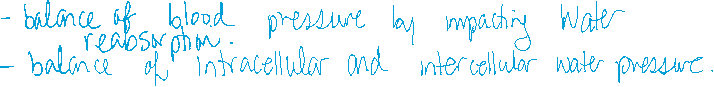 - balance of blood pressure by impacting water
reabsorption.
- balance of intracellular and intercellular water pressure.